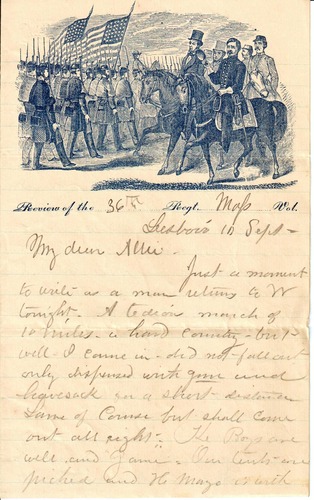 Review of the 36th Regt. Mass Vol.
Leesboro 10 Sept -
My dear Allie.
Just a moment
to write as a man returns to W
tonight - A tedious march of
10 miles - a hard country - but
well I came in - did not fall out
only dispensed with gun and
haversack for a short distance
Lame of Course but shall come
out all right - The Boys are
well and game - Our tents are
pitched and